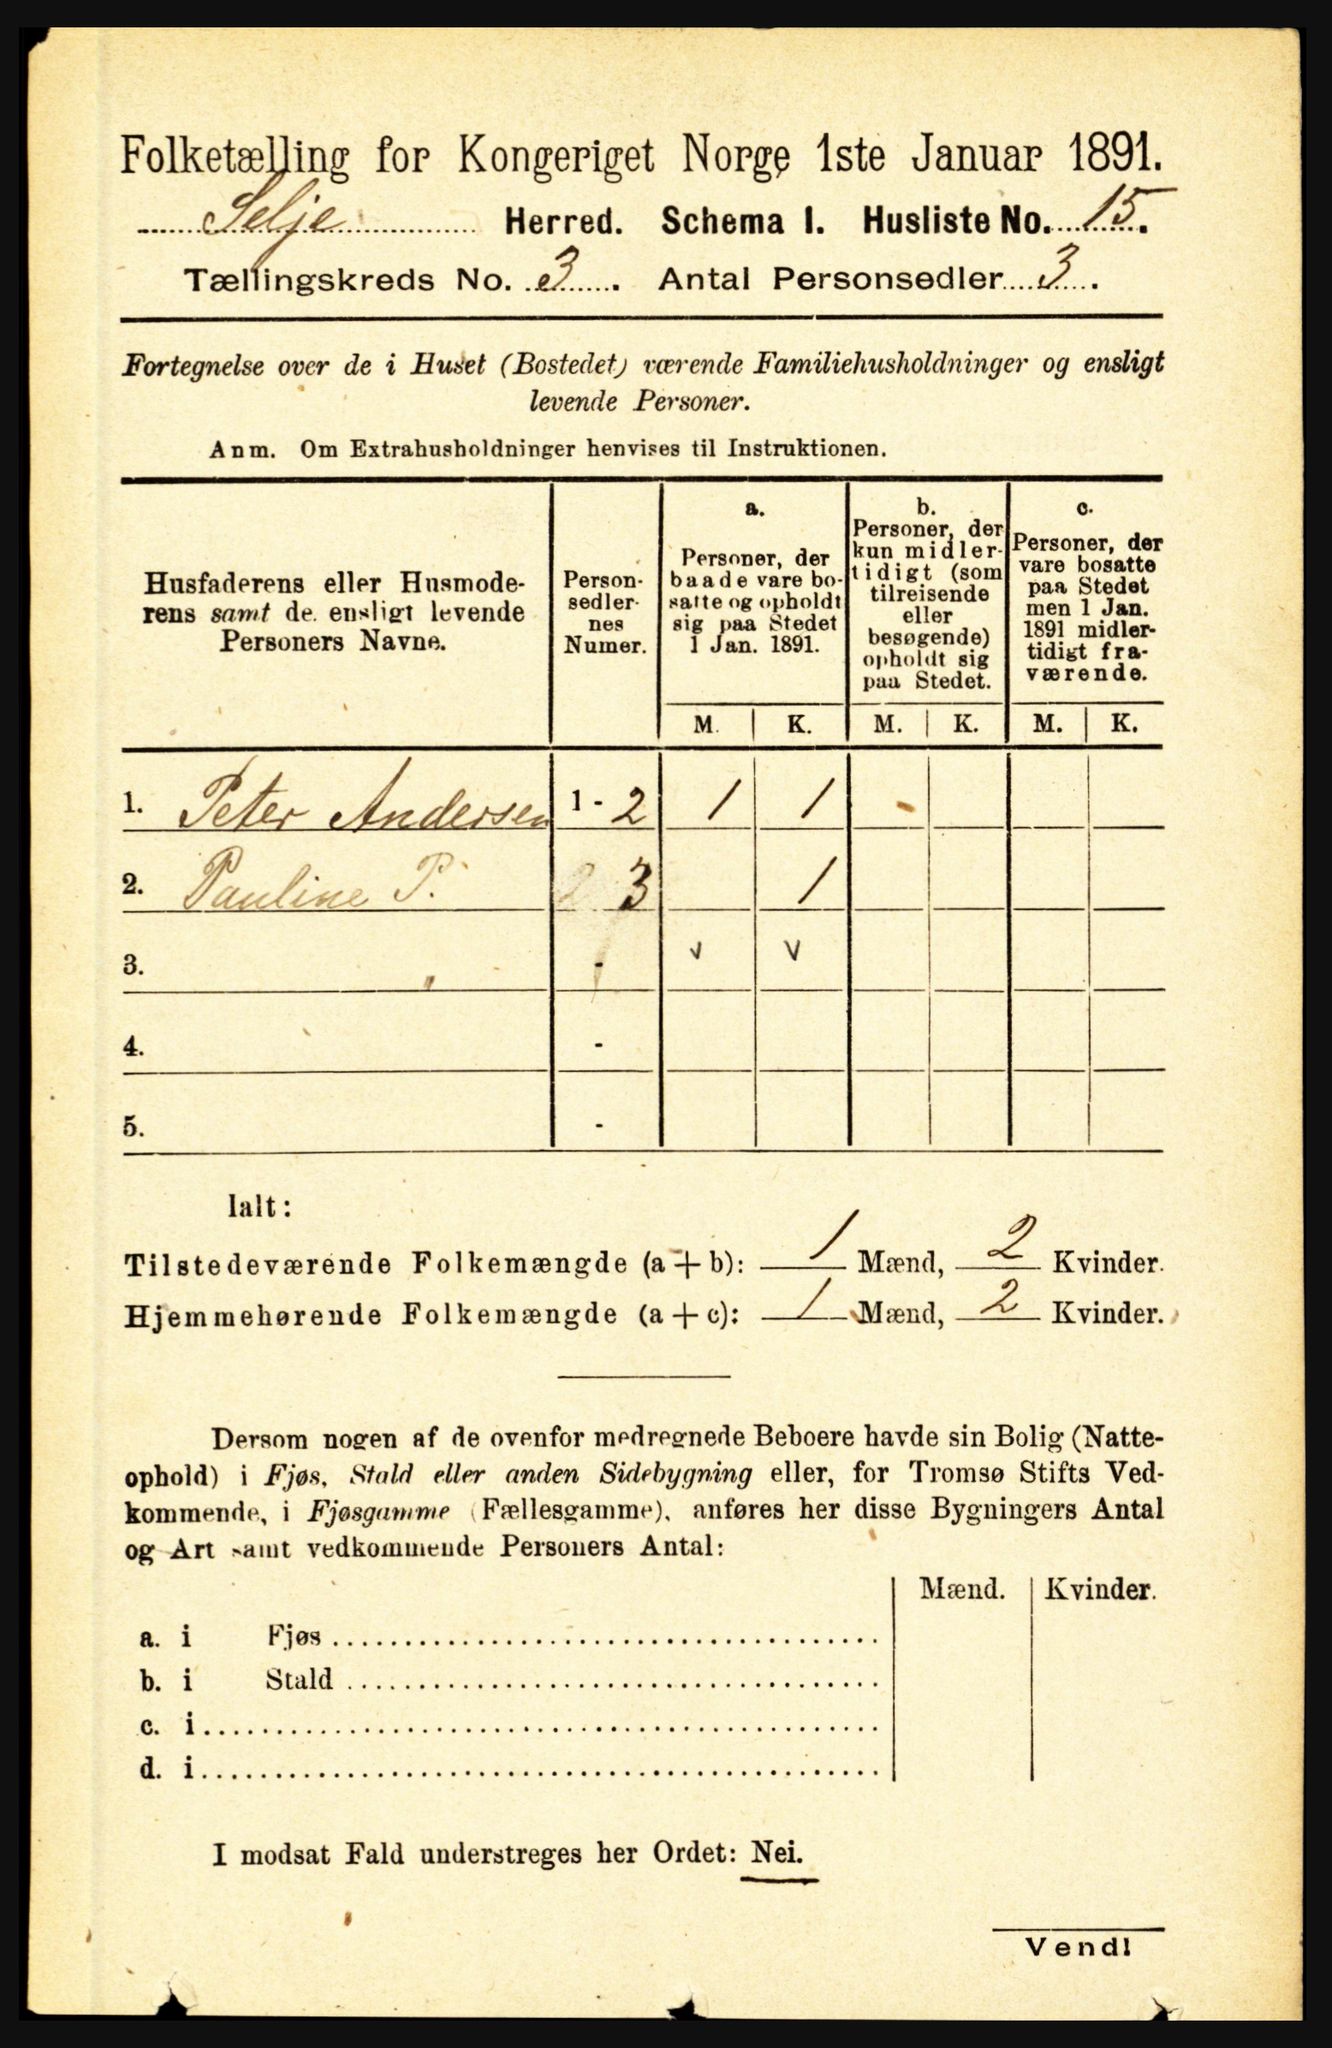 Folketælling for Kongeriget Norge 1ste Januar 1891.
Selje Herred. Schema I. Husliste No. 15.
Tællingskreds No. 3. Antal Personsedler 3.
Fortegnelse over de i Huset (Bostedet) værende Familiehusholdninger og ensligt
levende Personer.
Anm. Om Extrahusholdninger henvises til Instruktionen.
Husfaderens eller Husmode-
rens samt de ensligt levende
Personers Navne.
Person-
sedler-
nes
Numer.
a.
Personer, der
baade vare bo-
satte og opholdt
sig paa Stedet
1 Jan. 1891.
b.
Personer, der
kun midler-
tidigt (som
tilreisende
eller
besøgende)
opholdt sig
paa Stedet.
c.
Personer, der
vare bosatte
paa Stedet
men 1 Jan.
1891 midler-
tidigt fra-
værende.
M. K. M. K. M. K.
1. Peter Andersen 1 - 2 1 1
2. Pauline P. 3 1
3. - v v
4. -
5. -
Ialt:
Tilstedeværende Folkemængde (a + b): 1 Mænd, 2 Kvinder.
Hjemmehørende Folkemængde (a + c): 1 Mænd, 2 Kvinder.
Dersom nogen af de ovenfor medregnede Beboere havde sin Bolig (Natte-
ophold) i Fjøs, Stald eller anden Sidebygning eller, for Tromsø Stifts Ved-
kommende, i Fjøsgamme (Fællesgamme), anføres her disse Bygningers Antal
og Art samt vedkommende Personers Antal:
Mænd. Kvinder.
a. i Fjøs
b. i Stald
c. i
d. i
I modsat Fald understreges her Ordet: Nei.
Vend!